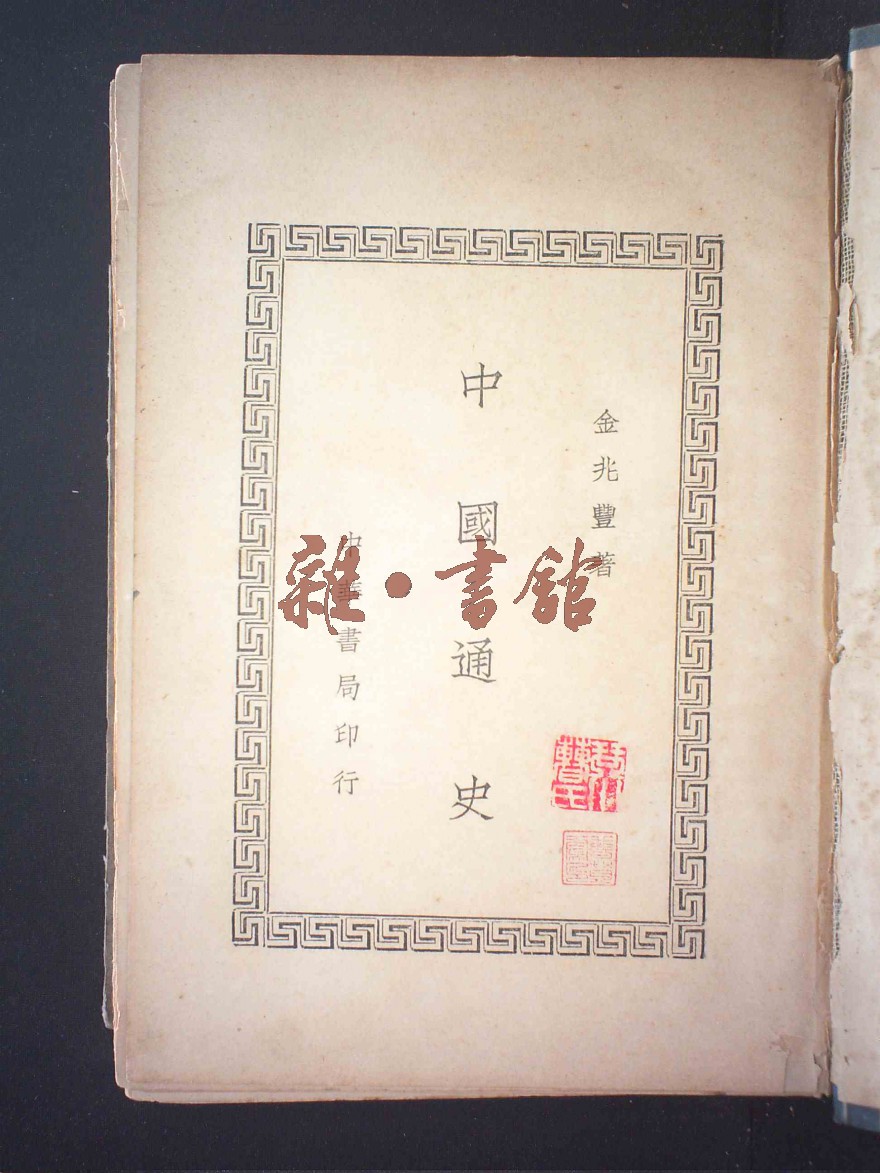 金兆豐著
中國通史
中華書局印行
雜·書館